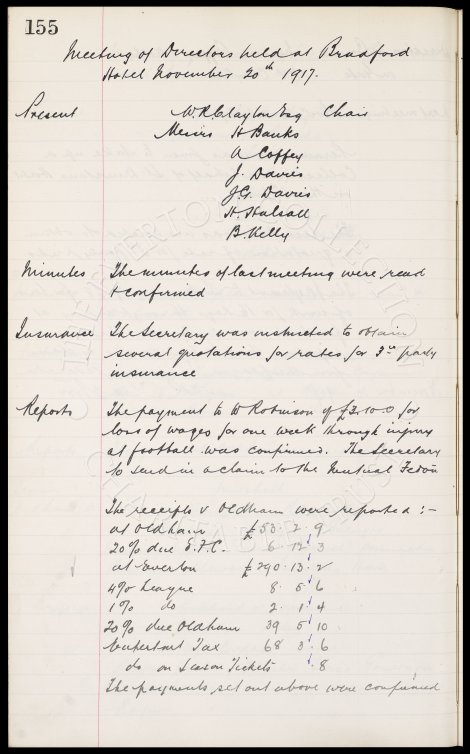 155
Meeting of Directors held at Bradford
Hotel November 20th 1917.
Present W.R. Clayton Esq Chair
Messrs H Banks
A Coffey
J. Davies
J.G. Davies
H. Halsall
B. Kelly
Minutes The minutes of last meeting were read
& confirmed
Insurance The Secretary was instructed to obtain
several quotations for rates for 3rd party
insurance
Reports The payment to W Robinson of £3.10.0 for
loss of wages for one week through injury
at football was confirmed. The Secretary
to send in a claim to the Mutual Fedon
The receipts v Oldham were reported :-
at Oldham £53. 2. 9
20% due E.F.C. 6. 12. 3
at Everton £290. 13. 2
4% League 8. 5. 6
1% do 2. 1. 4
20% due Oldham 39 5 10
Entertmt Tax 68 3. 6
do on Season Tickets . 8
The payments set out above were confirmed